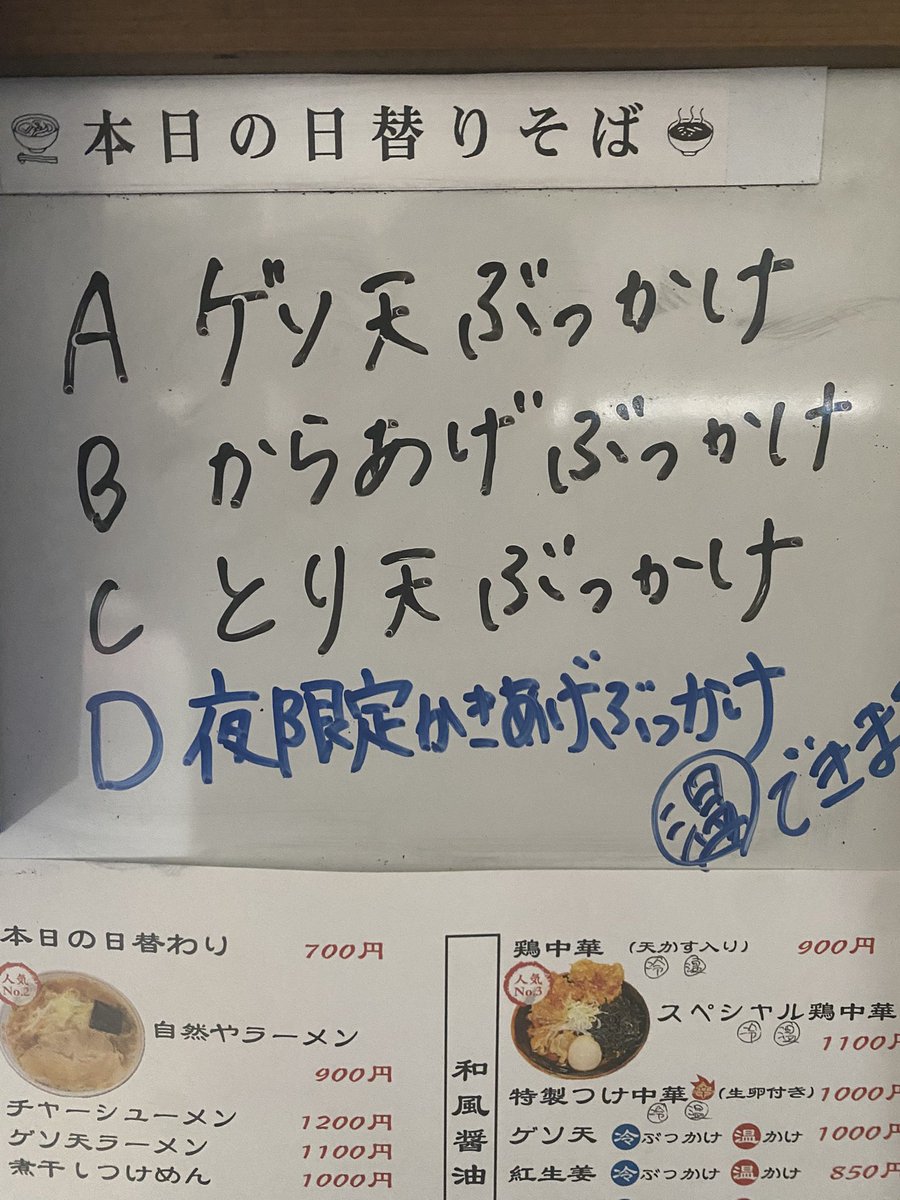 本日の日替りそば
A ゲソ天ぶっかけ
B からあげぶっかけ
C とり天ぶっかけ
D 夜限定かきあげぶっかけ
温できま
本日の日替わり 700円
人気No.2
自然やラーメン
900円
チャーシューメン 1200円
ゲソ天ラーメン 1100円
煮干しつけめん 1000円
和風醤油
鶏中華 (天かす入り) 900円
冷 温
人気No.3
スペシャル鶏中華
冷 温
1100円
特製つけ中華 (生卵付き) 1000円
冷 温
ゲソ天 冷ぶっかけ 温かけ 1000円
紅生姜 冷ぶっかけ 温かけ 850円